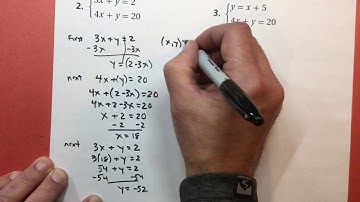 2. { 3x + y = 2
4x + y = 20
3. { y = x + 5
4x + y = 20
First 3x + y = 2
-3x -3x
y = (2-3x)
(x,y) =
next 4x + (y) = 20
4x + (2-3x) = 20
4x + 2-3x = 20
x + 2 = 20
-2 -2
x = 18
next 3x + y = 2
3(18) + y = 2
54 + y = 2
-54 -54
y = -52